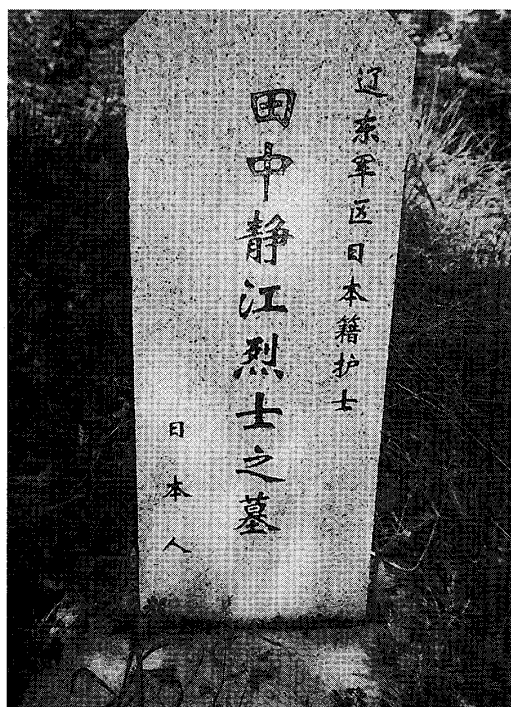 辽东军区日本籍护士
田中静江烈士之墓
日本人